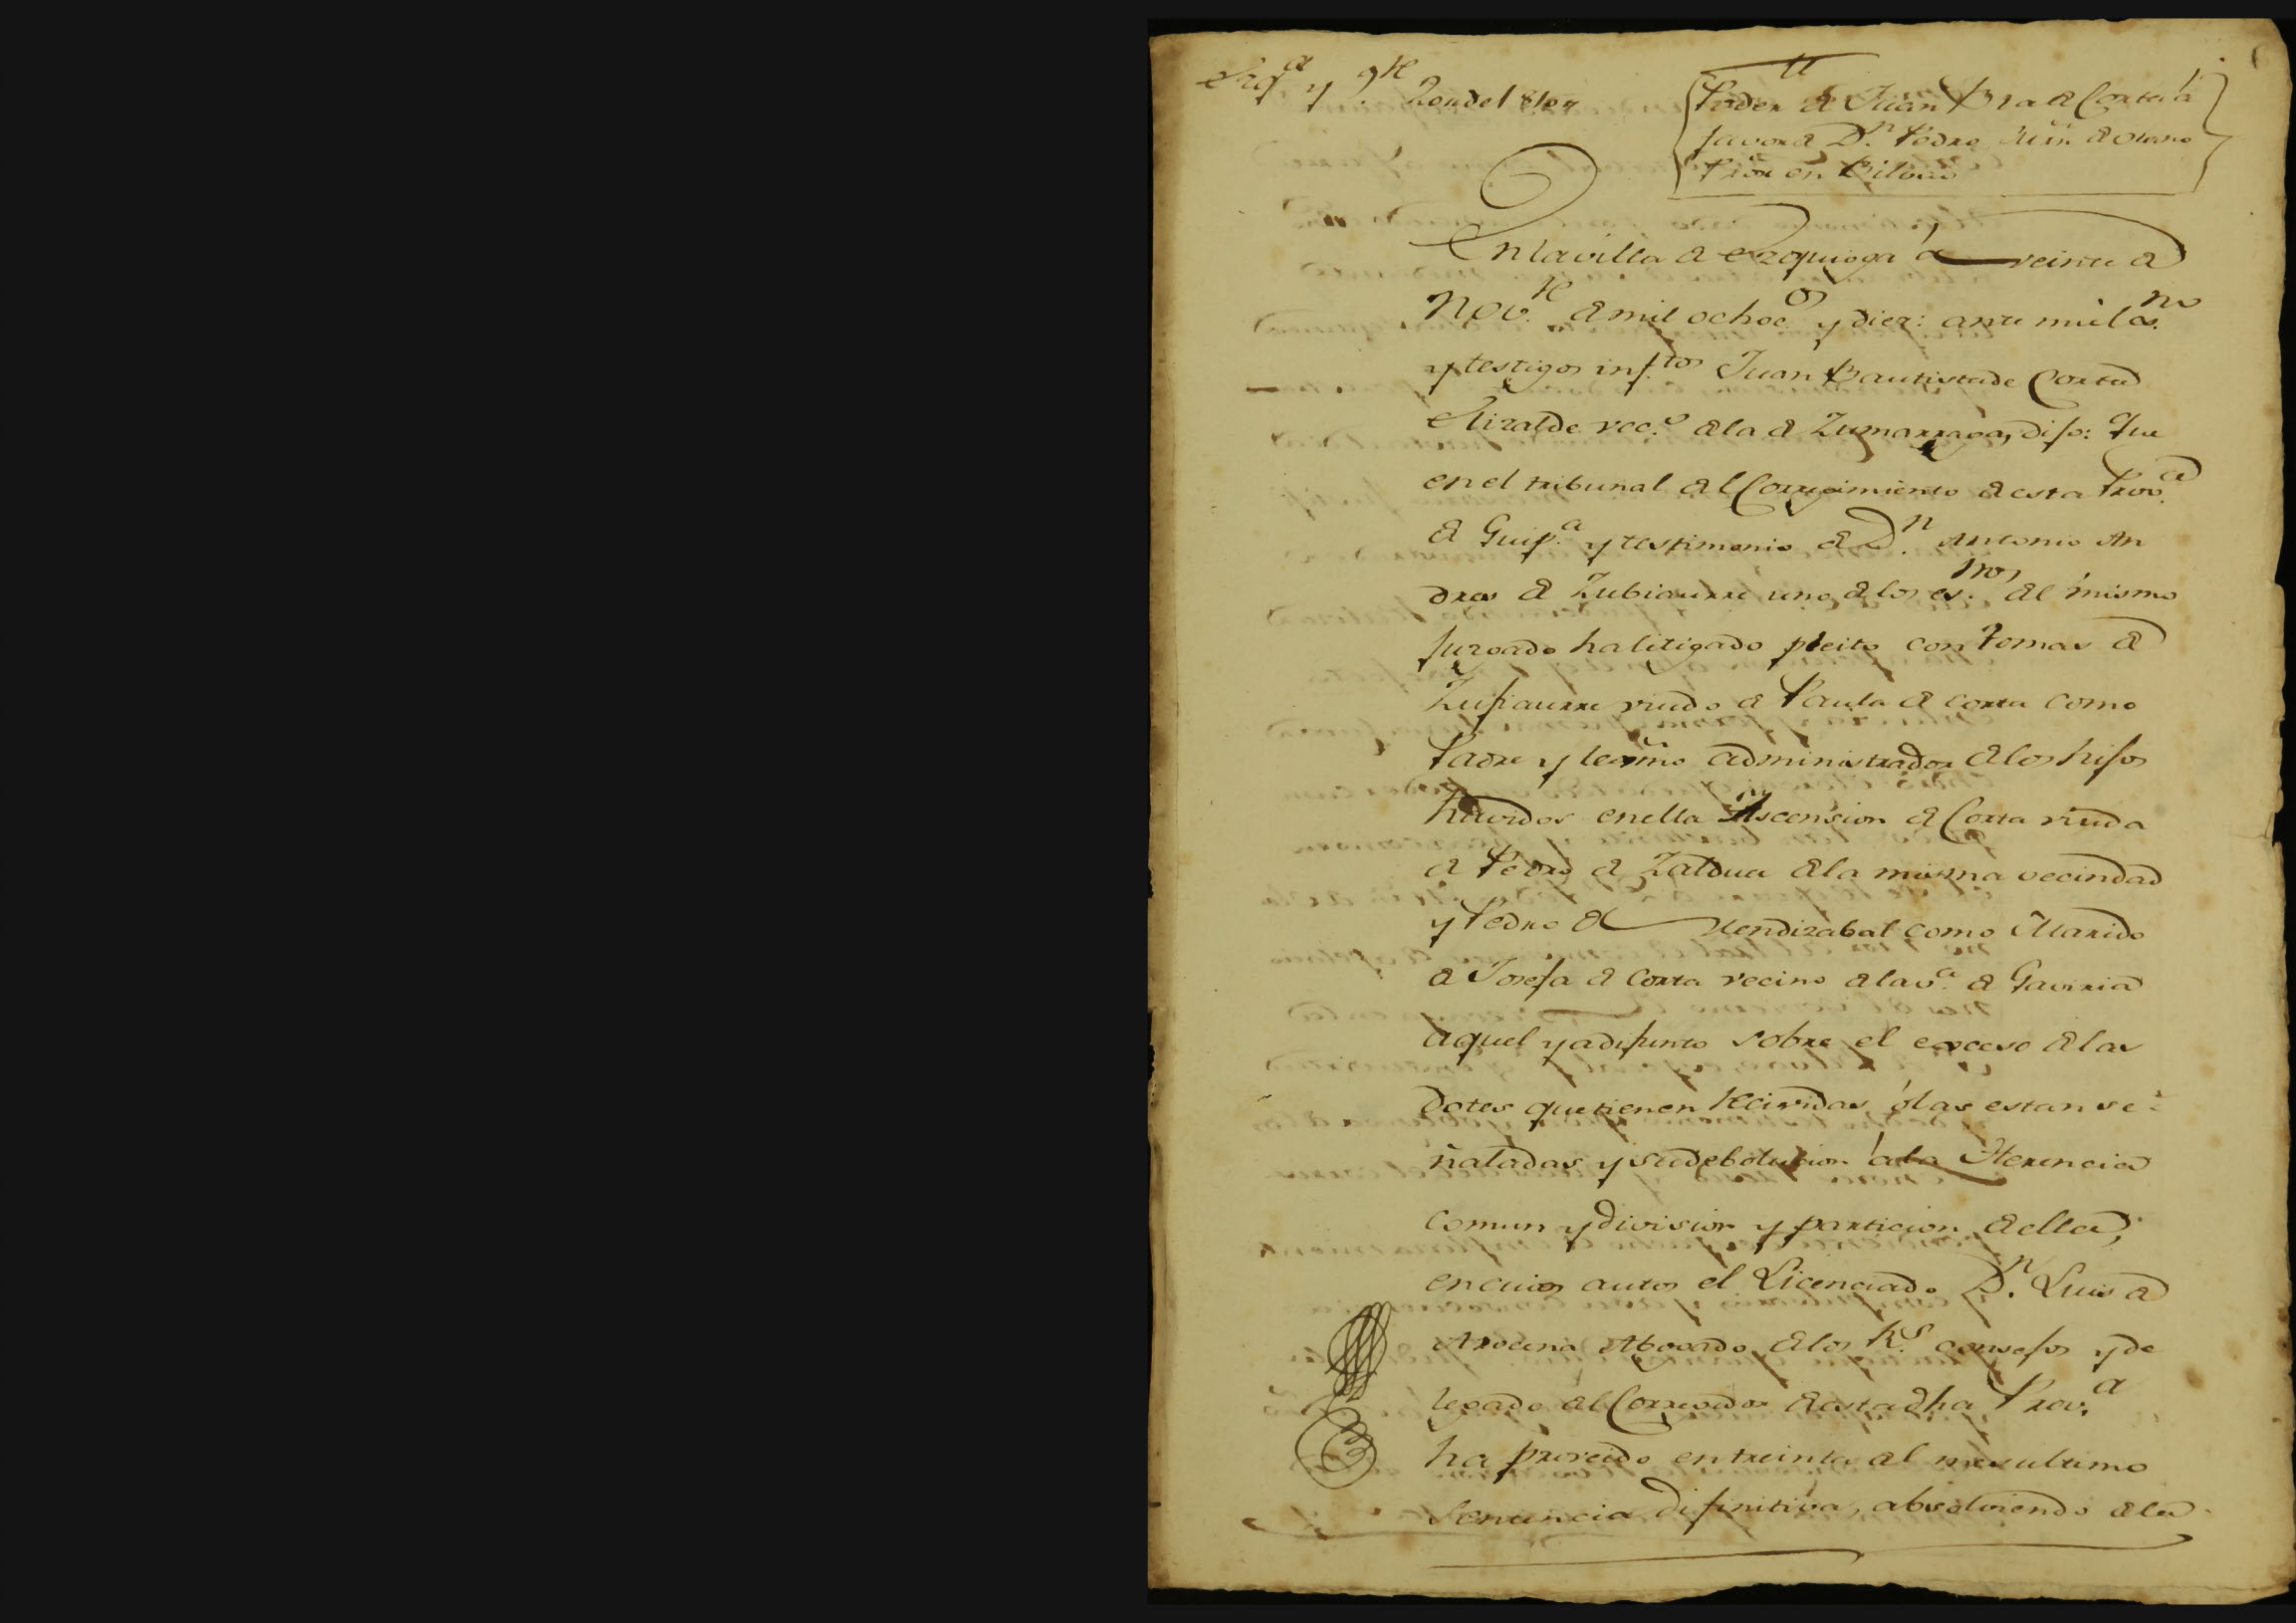 Ezq.ª y 9.re 20 del 810
Poder de Juan Bta de Corta á
favor de D.n Pedro de
Prior en Bilbao
En la villa de Ezquioga á veinte de
Nov.re de mil ochoc.os y diez: ante mi el es.no
y testigos inf.tos Juan Bautista de Corta
Elizalde vec.o de la de Zumarraga, dijo: Que
en el tribunal del Corregimiento de esta Prov.ca
de Guip.a y testimonio de D.n Antonio An
dres de Zubiaurre uno de los es.nos del mismo
Juzgado ha litigado pleito con Tomas de
Zufiaurre viudo de Paula de Corta como
Padre y lexmo administrador de los hijos
havidos en ella Ascension de Corta viuda
de Pedro de Zaldua de la misma vecindad
y Pedro de Mendizabal como Marido
de Josefa de Corta vecino de la v.a de Gaviria
aquel ya difunto sobre el exceso de las
dotes que tienen recividas, ó las estan se
ñaladas y su debolucion á la Herencia
comun y division y particion de ella,
en cuios autos el Licenciado D.n Luis de
Arocena Abogado de los R.s consejos y de
legado del Corregidor de esta dha Prov.a
ha proveido en treinta del mes ultimo
Sentencia difinitiva, absolviendo de la